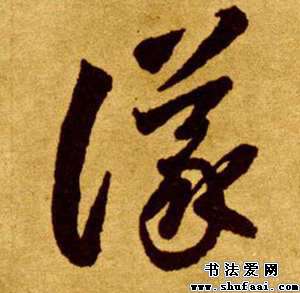 議
书法爱网
www.shufaai.com